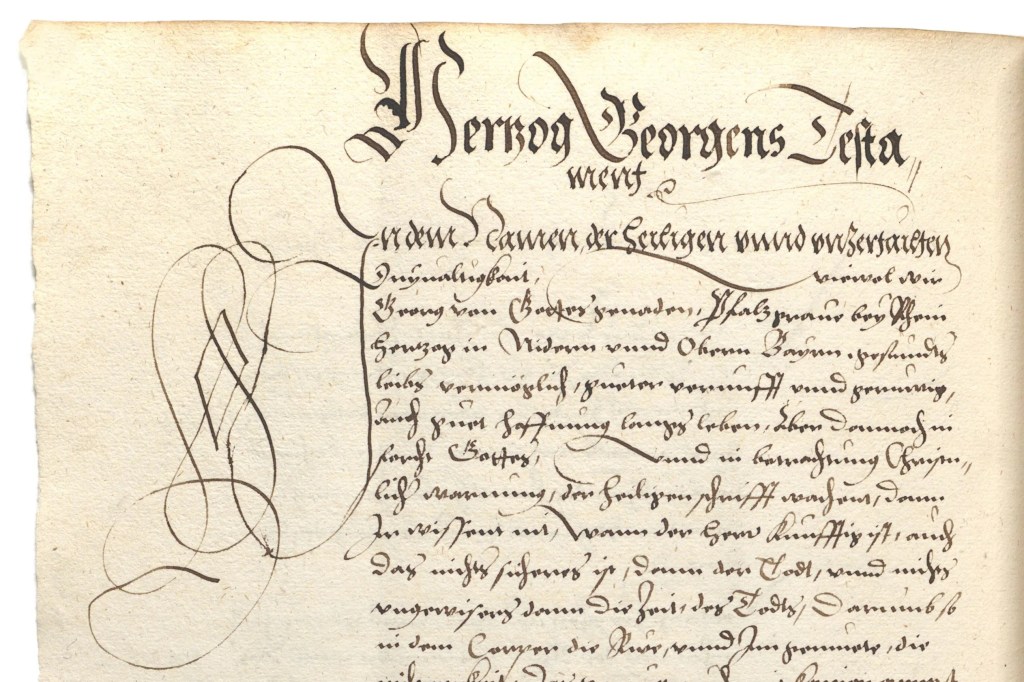 Hertzog Georgens Testa„
ment
In dem Namen, der heiligen vnnd vnzertailten
Drÿualtigkait, wiewol wir
Georg von Gottes genaden, Pfalzgraue beÿ Rhein
Hertzog in Nidern vnnd Obern Bayrn, gesundts
leibs vermöglich, gueter vernunfft vnnd geruwig,
Auch guet hoffnung langs leben, Aber dannoch in
forcht Gottes, vnnd in betrachtung Christen„
lich warnung, der heiligen schrifft wachent, dann
Ir wissent nit, Wann der herr Kunfftig ist, auch
das nichts sichers ist, dann der Todt, vnnd nichts
vngewisers dann die Zeit, des Todts, Darumb so
in dem Corper die Rue, vnnd Im gemuete, die